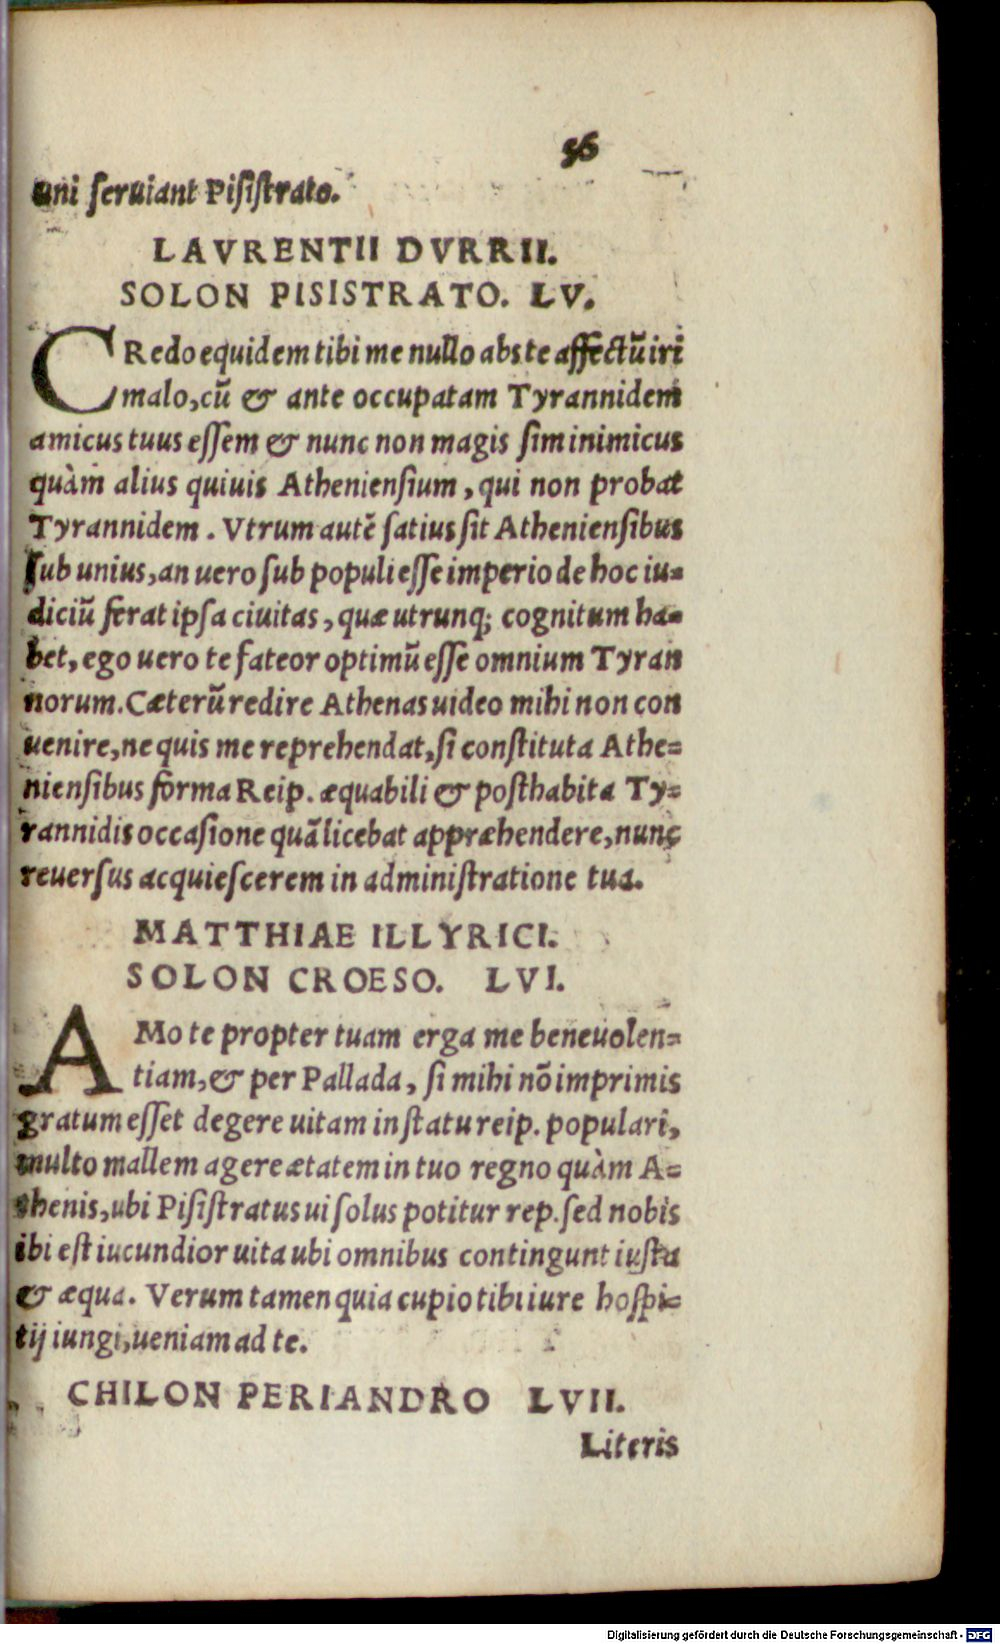 56
uni ſeruiant Piſiſtrato.
LAVRENTII DVRRII.
SOLON PISISTRATO. LV.
CRedo equidem tibi me nullo abs te affectũ iri
malo, cũ & ante occupatam Tyrannidem
amicus tuus eſſem & nunc non magis ſim inimicus
quàm alius quiuis Athenienſium, qui non probat
Tyrannidem. Vtrum autẽ ſatius ſit Athenienſibus
ſub unius, an uero ſub populi eſſe imperio de hoc iu=
diciũ ferat ipſa ciuitas, quæ utrunq; cognitum ha=
bet, ego uero te fateor optimũ eſſe omnium Tyran
norum. Cæterũ redire Athenas uideo mihi non con
uenire, ne quis me reprehendat, ſi conſtituta Athe=
nienſibus forma Reip. æquabili & poſthabita Ty=
rannidis occaſione quã licebat appræhendere, nunc
reuerſus acquieſcerem in adminiſtratione tua.
MATTHIAE ILLYRICI.
SOLON CROESO. LVI.
AMo te propter tuam erga me beneuolen=
tiam, & per Pallada, ſi mihi nõ imprimis
gratum eſſet degere uitam in ſtatu reip. populari,
multo mallem agere ætatem in tuo regno quàm A=
thenis, ubi Piſiſtratus ui ſolus potitur rep. ſed nobis
ibi eſt iucundior uita ubi omnibus contingunt iuſta
& æqua. Verum tamen quia cupio tibi iure hoſpi=
tij iungi, ueniam ad te.
CHILON PERIANDRO LVII.
Literis
Digitalisierung gefördert durch die Deutsche Forschungsgemeinschaft - DFG